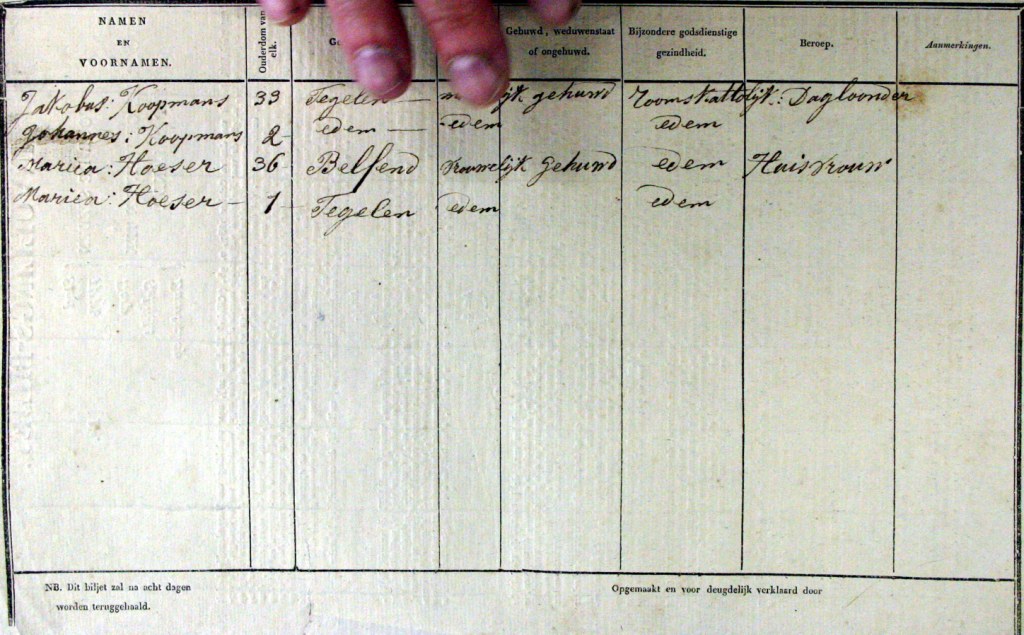 NAMEN
EN
VOORNAMEN.
Ouderdom van elk.
Ge
Gehuwd, weduwenstaat of ongehuwd.
Bijzondere godsdienstige gezindheid.
Beroep.
Aanmerkingen.
Jakobus: Koopmans 33 Tegelen — m ijk gehuwd roomskattolijk: Dagloonder
Johannes: Koopmans 2 edem — edem edem
Mariea: Hoeser 36 Belfend vrouwelijk Gehuwd edem Huisvrouw
Mariea: Hoeser — 1 — Tegelen edem edem
NB. Dit biljet zal na acht dagen
worden teruggehaald.
Opgemaakt en voor deugdelijk verklaard door